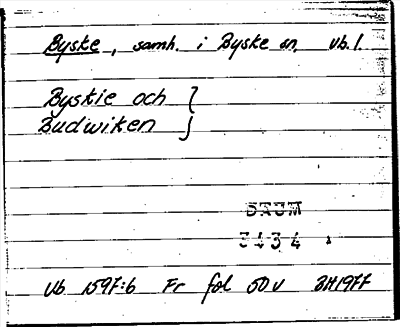 Byske, samh. i Byske sn. Vb. l.
Byskie och }
Budwiken }
DAUM
3434
Vb 1597:6 Fr fol 50 v BH1977